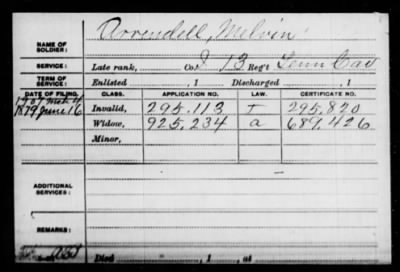 Arrendell, Melvin
NAME OF SOLDIER:
SERVICE: Late rank, Co. I 13 Reg't Tenn Cav
TERM OF SERVICE: Enlisted , 1 Discharged , 1
DATE OF FILING. CLASS. APPLICATION NO. LAW. CERTIFICATE NO.
1879 June 16 Invalid, 295.113 I 295.820
1907 Mch 4 Widow, 925,234 a 689,426
Minor,
ADDITIONAL SERVICES:
REMARKS:
Died , 1 , at